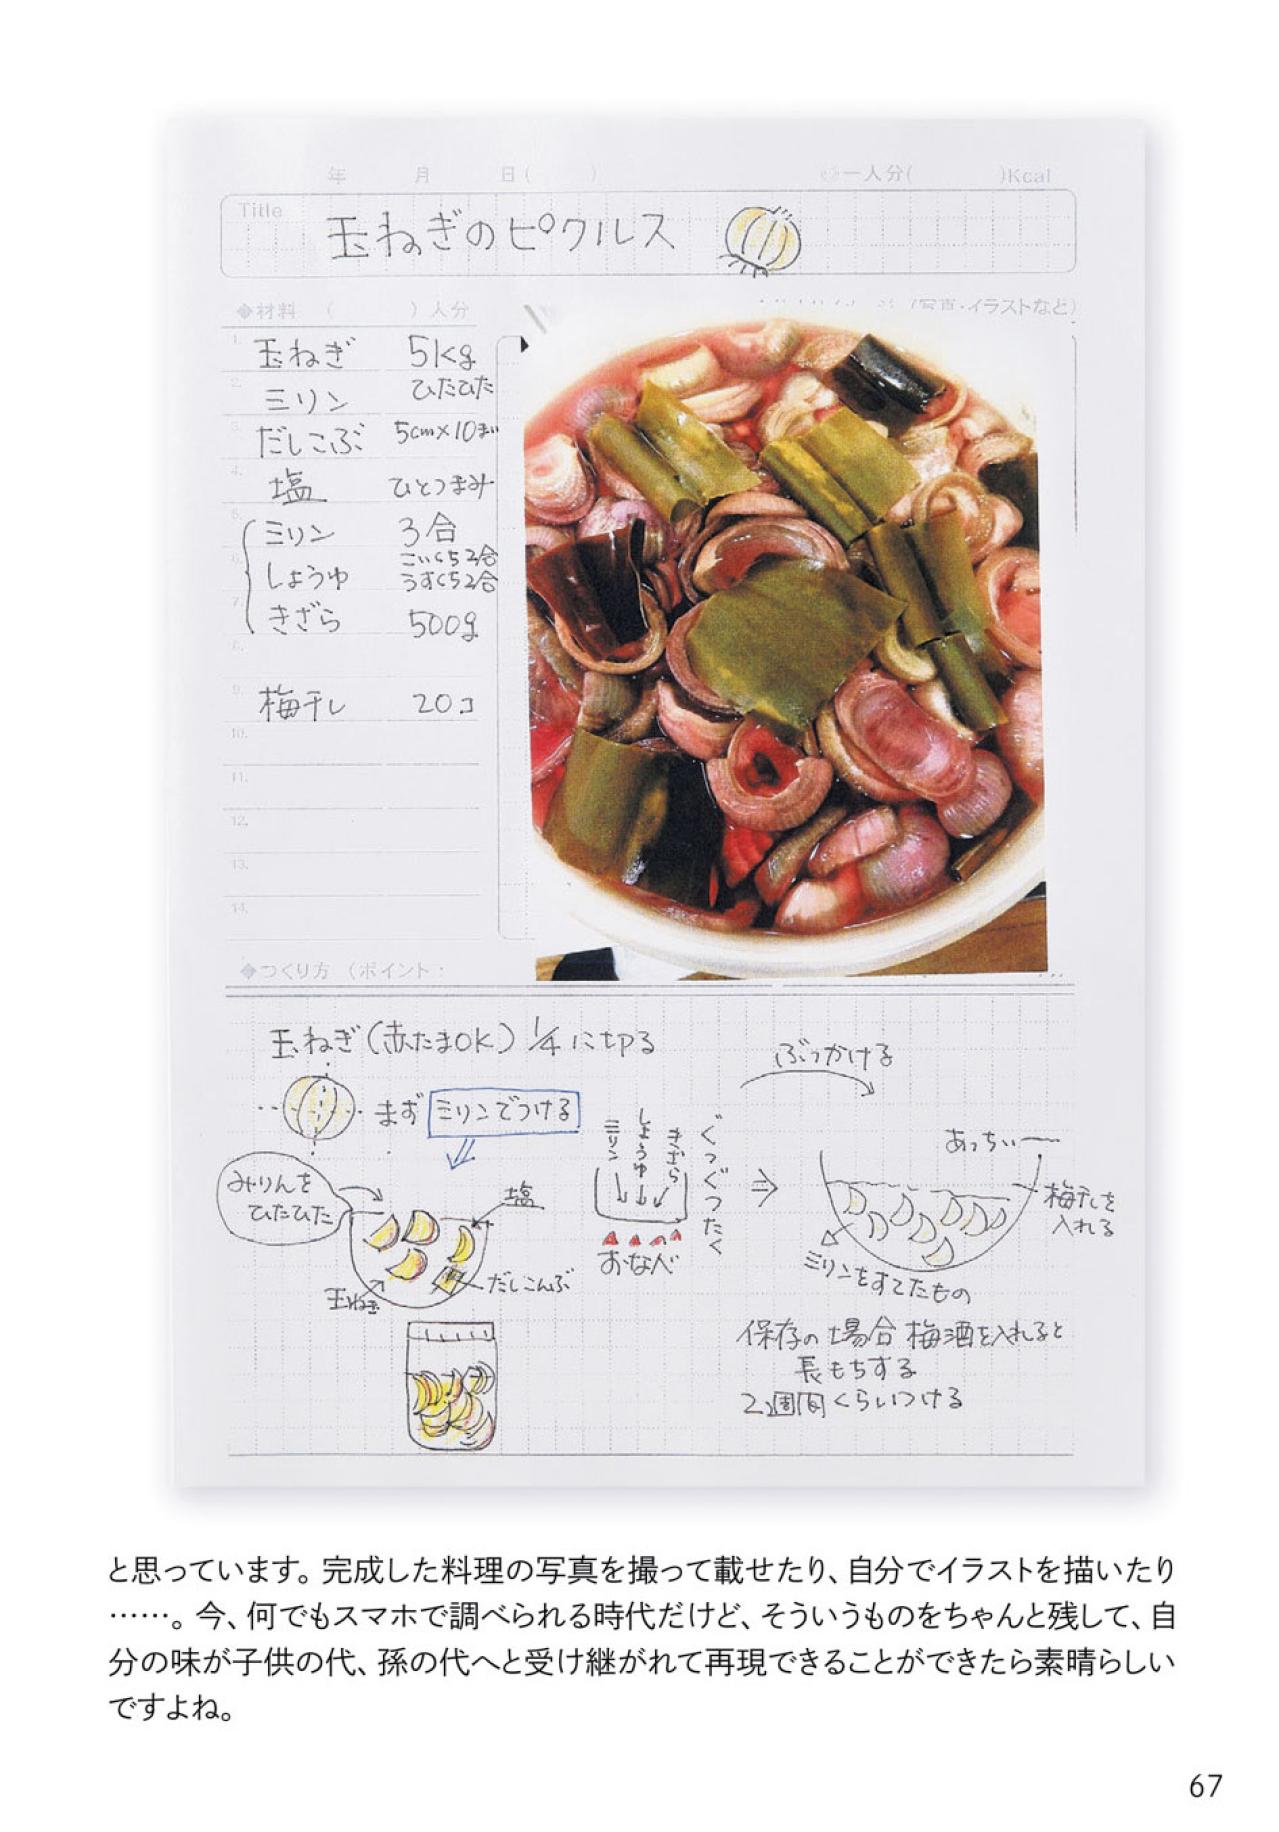 年 月 日( ) 一人分( )Kcal
Title 玉ねぎのピクルス
◆材料 ( )人分
(写真・イラストなど)
1. 玉ねぎ 5kg
2. ミリン ひたひた
3. だしこぶ 5cm×10まい
4. 塩 ひとつまみ
5. ミリン 3合
6. しょうゆ こいくち2合
うすくち2合
7. きざら 500g
8.
9. 梅干し 20コ
10.
11.
12.
13.
14.
◆つくり方 (ポイント:
玉ねぎ(赤たまOK) 1/4に切る
まず ミリンでつける
みりんを
ひたひた
塩
玉ねぎ
だしこんぶ
ミリン
しょうゆ
きざら
ぐつぐつたく
おなべ
ぶっかける
あっちぃー
梅干しを
入れる
ミリンをすてたもの
保存の場合 梅酒を入れると
長もちする
2週間くらいつける
と思っています。完成した料理の写真を撮って載せたり、自分でイラストを描いたり
……。今、何でもスマホで調べられる時代だけど、そういうものをちゃんと残して、自
分の味が子供の代、孫の代へと受け継がれて再現できることができたら素晴らしい
ですよね。
67